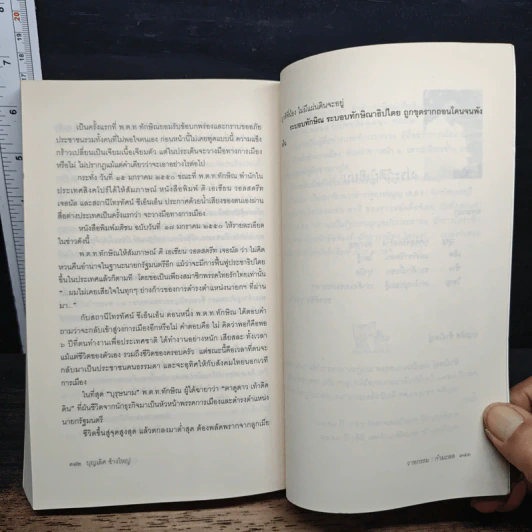 เป็นครั้งแรกที่ พ.ต.ท.ทักษิณยอมรับข้อบกพร่องและกราบขออภัย
ประชาชนรวมทั้งคนที่ไม่พอใจตนเอง ก่อนหน้านี้ไม่เคยพูดแบบนี้ ความแข็ง
กร้าวเปลี่ยนเป็นเจียมเนื้อเจียมตัว แต่ในประเด็นจะวางมือทางการเมือง
หรือไม่ ไม่ปรากฏแม้แต่คำเดียวว่าจะเอาอย่างไรต่อไป
กระทั่ง วันที่ ๑๕ มกราคม ๒๕๕๐ ขณะที่ พ.ต.ท.ทักษิณ พำนักใน
ประเทศสิงคโปร์ได้ให้สัมภาษณ์ หนังสือพิมพ์ ดิ เอเชียน วอลสตรีท
เจอนัล และสถานีโทรทัศน์ ซีเอ็นเอ็น ประกาศด้วยน้ำเสียงของตนเองผ่าน
สื่อต่างประเทศเป็นครั้งแรกว่า จะวางมือทางการเมือง
หนังสือพิมพ์มติชน ฉบับวันที่ ๑๗ มกราคม ๒๕๕๐ ให้รายละเอียด
ในข่าวดังนี้
พ.ต.ท.ทักษิณให้สัมภาษณ์ ดิ เอเชียน วอลสตรีท เจอนัล ว่า ไม่คิด
หวนคืนอำนาจในฐานะนายกรัฐมนตรีอีก แม้ว่าจะมีการฟื้นฟูประชาธิปไตย
ขึ้นในประเทศแล้วก็ตามที่ โดยขอเป็นเพียงสมาชิกพรรคไทยรักไทยเท่านั้น
"...ผมไม่เคยเสียใจในทุกๆ ย่างก้าวของการดำรงตำแหน่งนายกฯ ที่ผ่าน
มา..."
กับสถานีโทรทัศน์ ซีเอ็นเอ็น ตอนหนึ่ง พ.ต.ท.ทักษิณ ได้ตอบคำ
ถามว่าจะกลับเข้าสู่วงการเมืองอีกหรือไม่ คำตอบคือ ไม่ คิดว่าพอก็คือพอ
๖ ปีที่ตนทำงานเพื่อประเทศชาติ ได้ทำงานอย่างหนัก เสียสละ ทั้งเวลา
แม้แต่ชีวิตของตัวเอง รวมถึงชีวิตของครอบครัว แต่ขณะนี้คือเวลาที่ตนจะ
กลับมาเป็นประชาชนคนธรรมดา และจะอุทิศให้กับสังคมไทยนอกเวที
การเมือง
ในที่สุด "บุรุษนาม" พ.ต.ท.ทักษิณ ผู้ได้ฉายาว่า "ตาดูดาว เท้าติด
ดิน" ที่ผันชีวิตจากนักธุรกิจมาเป็นหัวหน้าพรรคการเมืองและดำรงตำแหน่ง
นายกรัฐมนตรี
ชีวิตขึ้นสู่จุดสูงสุด แล้วตกลงมาต่ำสุด ต้องพลัดพรากจากลูกเมีย
๓๑๒ บุญเลิศ ช้างใหญ่
ไม่มีแผ่นดินจะอยู่
ระบอบทักษิณ ระบอบทักษิณาธิปไตย ถูกขุดรากถอนโคนจนพัง